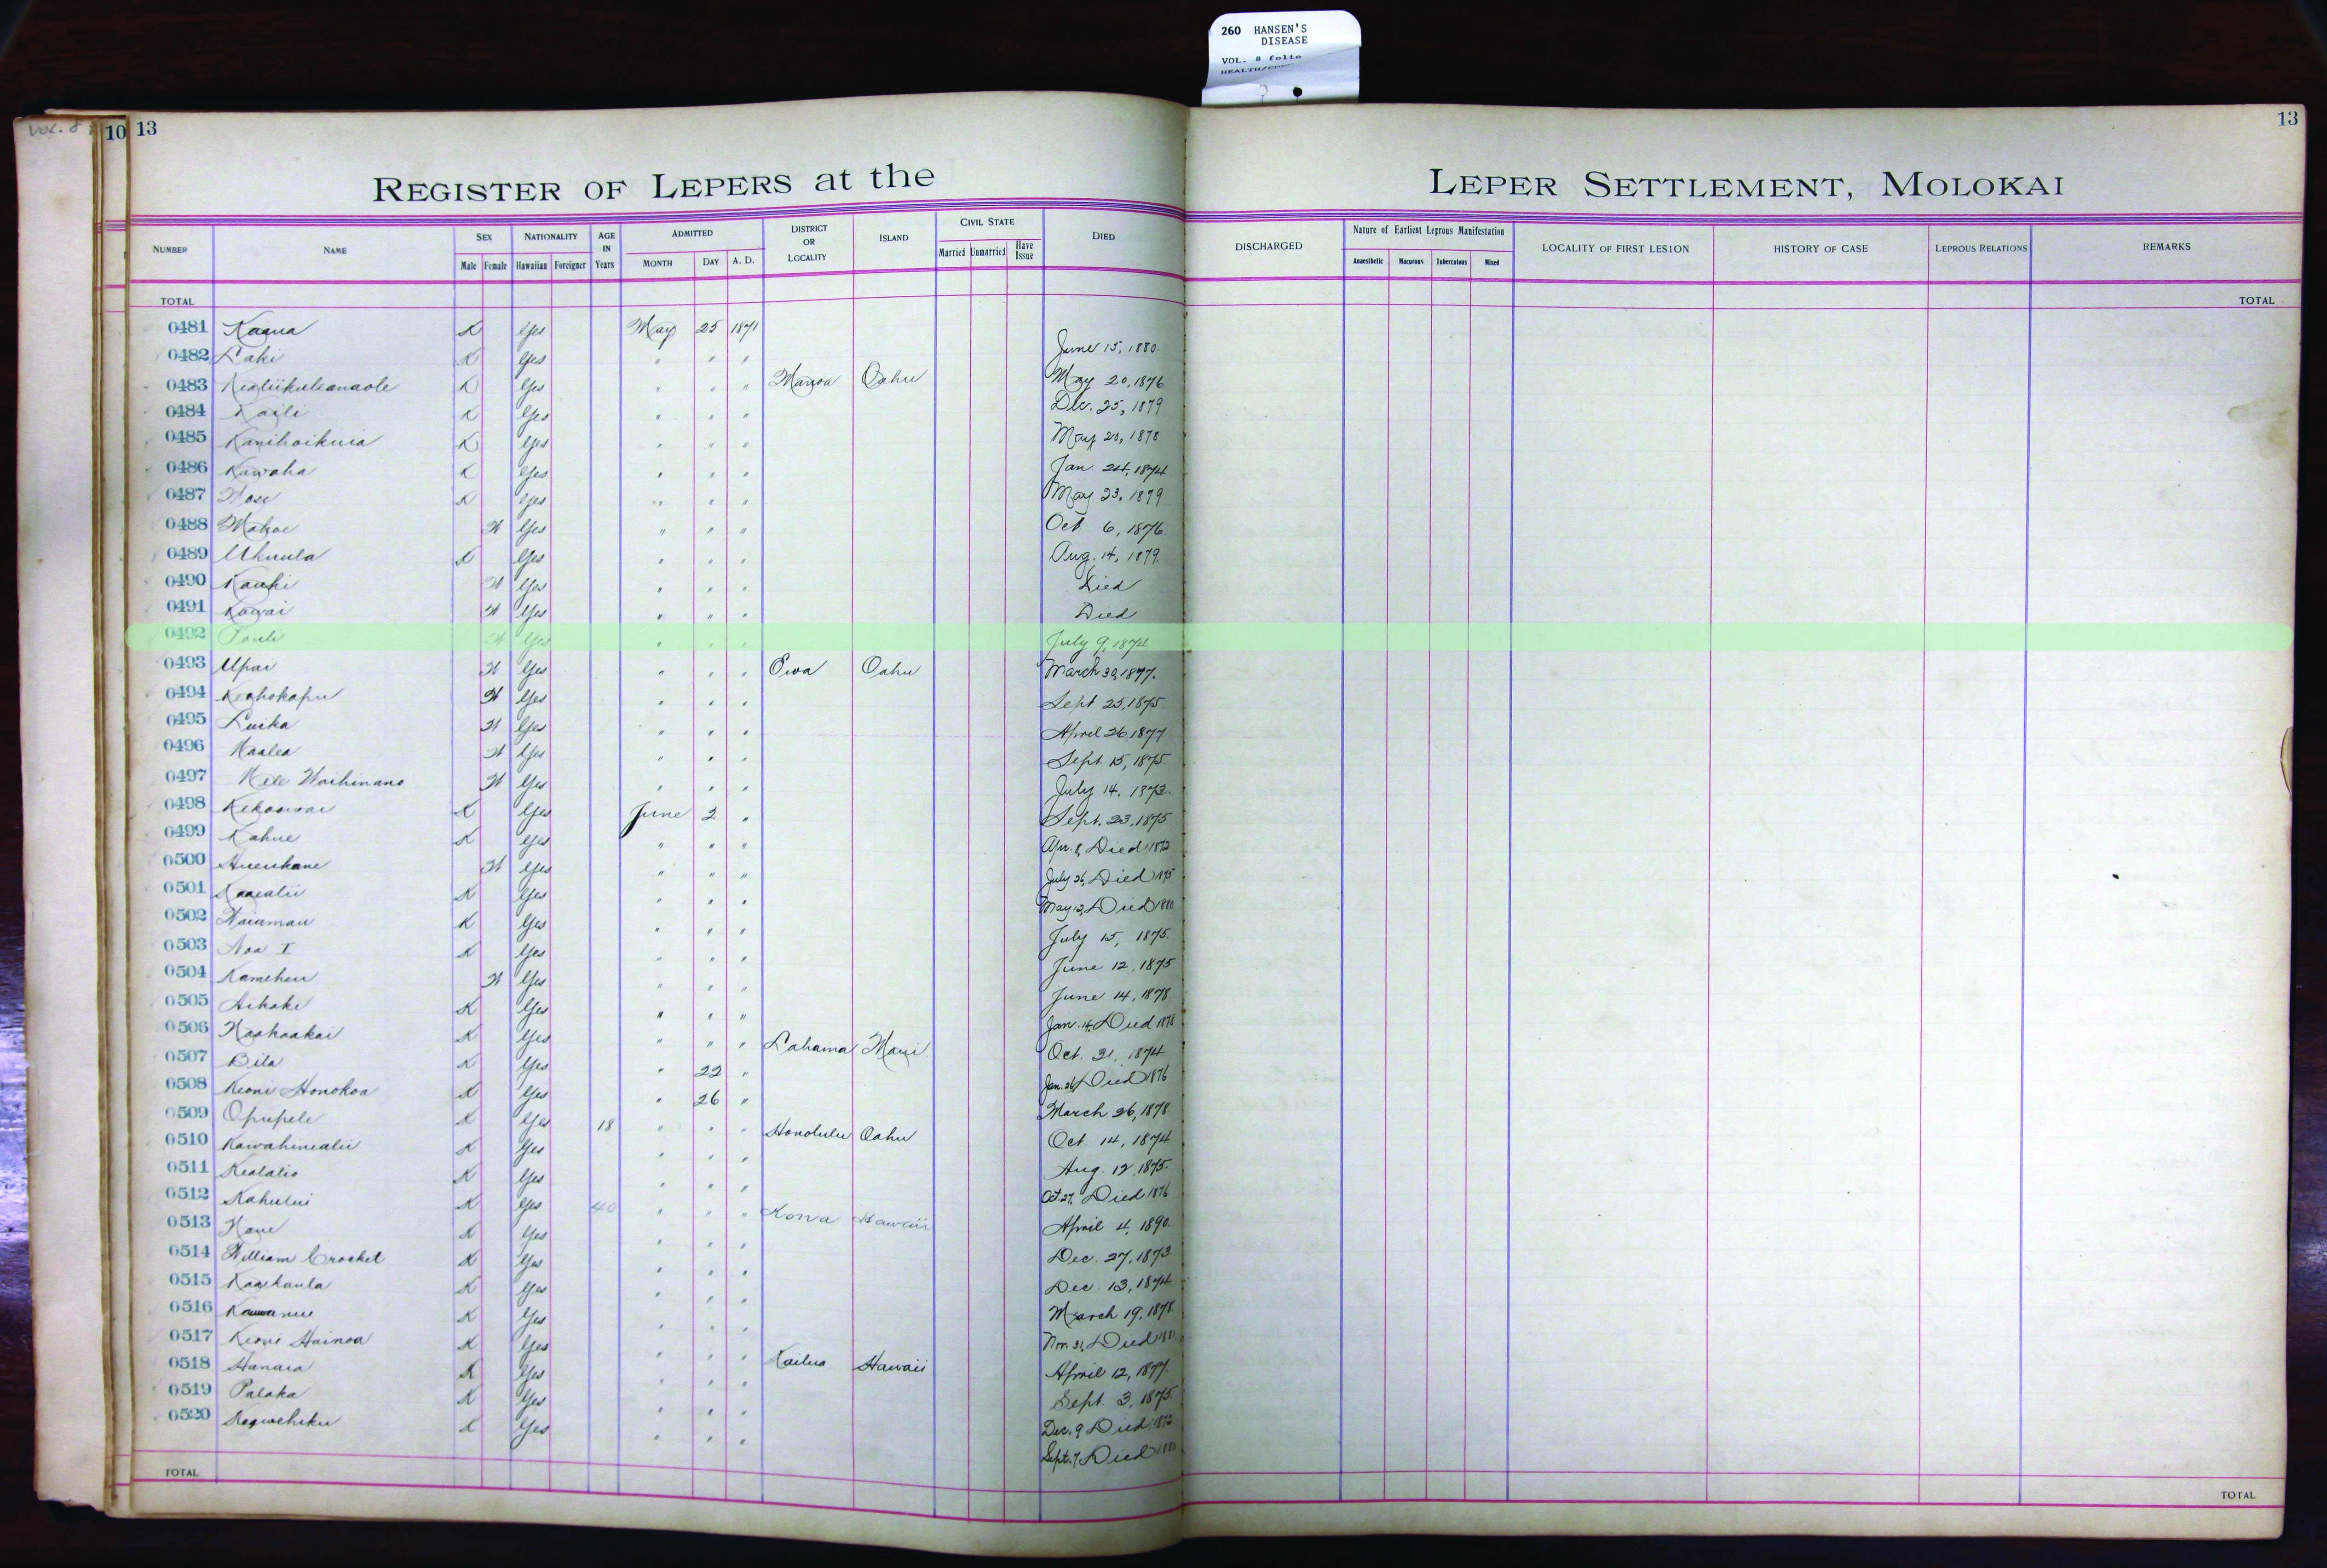 260 HANSEN'S
DISEASE
VOL. 8 folio
VOL. 8
10 13
13
REGISTER OF LEPERS at the LEPER SETTLEMENT, MOLOKAI
NUMBER NAME SEX Male Female NATIONALITY Hawaiian Foreigner AGE IN Years ADMITTED MONTH DAY A. D. DISTRICT OR LOCALITY ISLAND CIVIL STATE Married Unmarried Have Issue DIED DISCHARGED Nature of Earliest Leprous Manifestation Anaesthetic Macurous Tuberculous Mixed LOCALITY OF FIRST LESION HISTORY OF CASE LEPROUS RELATIONS REMARKS
TOTAL TOTAL
0481 Kaaua K Yes May 25 1871
0482 Laki K Yes " " " June 15, 1880.
0483 Kealiikuleanaole K Yes " " " Manoa Oahu May 20, 1876
0484 Kaili K Yes " " " Dec. 25, 1879
0485 Kanihoikuia K Yes " " " May 20, 1878
0486 Kawaha K Yes " " " Jan. 24, 1874
0487 K Yes " " " May 23, 1879
0488 Mahoe W Yes " " " Oct 6, 1876.
0489 Ukuula K Yes " " " Aug. 14, 1879.
0490 Kauhi W Yes " " " Died
0491 Kawai W Yes " " " Died
0492 Pauli W Yes " " " July 9, 1874
0493 Upai W Yes " " " Ewa Oahu March 30, 1877.
0494 Keahokapu W Yes " " " Sept 25, 1875.
0495 Luika W Yes " " " April 26 1877
0496 Maalea W Yes " " " Sept. 15, 1875.
0497 Mele Waihinano W Yes " " " July 14, 1873.
0498 Kekoowai K Yes June 2 " Sept. 23, 1875
0499 Kahue K Yes " " " Apr. 8, Died 1872
0500 Hueukane W Yes " " " July 26, Died 1875
0501 K Yes " " " May 12, Died 1880
0502 Waiamau K Yes " " " July 15, 1875.
0503 Noa I K Yes " " " June 12. 1875
0504 Kameheu W Yes " " " June 14, 1878
0505 Aikake K Yes " " " Jan. 14, Died 1878
0506 Naahaakai K Yes " " " Lahaina Maui Oct. 31, 1874
0507 Bila K Yes " 22 " Jan. 26, Died 1876
0508 Keoni Honokoa K Yes " 26 " March 26, 1878.
0509 Opupele K Yes 18 " " " Honolulu Oahu Oct 14, 1874
0510 Kawahinealii K Yes " " " Aug. 12. 1875.
0511 Kealalio K Yes " " " Oct. 27, Died 1876
0512 Kahului K Yes 40 " " " Kona Hawaii April 4, 1890.
0513 Kaue K Yes " " " Dec. 27, 1873.
0514 William Crocket K Yes " " " Dec. 13, 1874
0515 Kaaikaula K Yes " " " March 19, 1878
0516 K Yes " " " Nov. 31, Died
0517 Keoni Hainoa K Yes " " " Kailua Hawaii April 12, 1877.
0518 Hanaia K Yes " " " Sept. 3, 1875.
0519 Palaka K Yes " " " Dec. 9 Died 1872
0520 K Yes " " " Sept. 7, Died 1880
TOTAL TOTAL